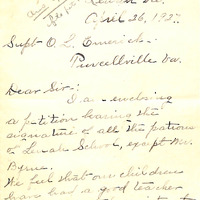 Lenah Va.
April 26, 1927.
Supt O. L. Emerick.:
Purcellville Va.
Dear Sir:-
I am enclosing
a petition bearing the
signature of all the patrons
of Lenah School, except Mr.
Byrne.
We feel that our children
have had a good teacher